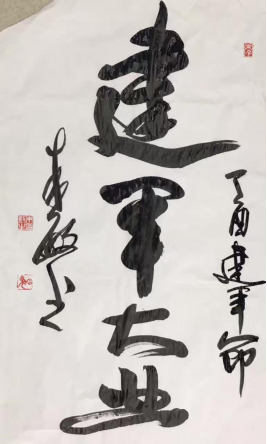 丁酉建军节
建军大业
书